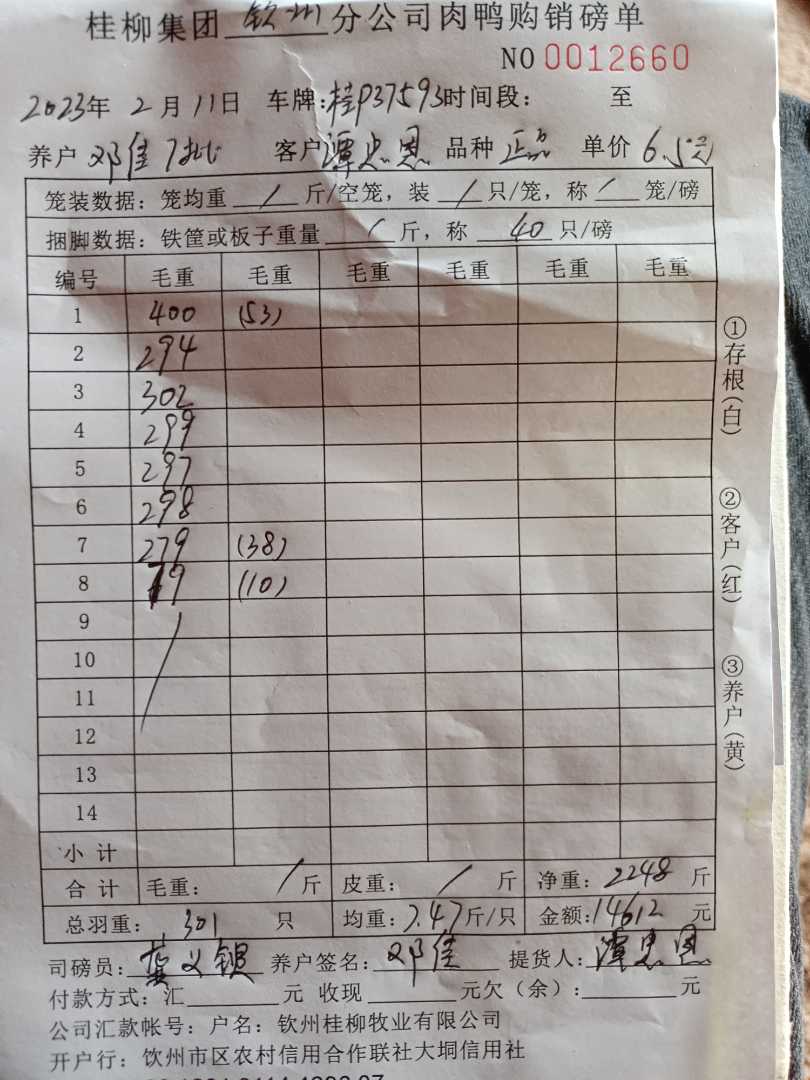 桂柳集团 钦州 分公司肉鸭购销磅单
NO 0012660
2023年 2月 11日 车牌:桂P37593时间段: 至
养户 邓佳7批 客户谭忠恩 品种 正品 单价 6.5元
笼装数据: 笼均重 / 斤/空笼, 装 / 只/笼, 称 / 笼/磅
捆脚数据: 铁筐或板子重量 / 斤, 称 40 只/磅
编号 毛重 毛重 毛重 毛重 毛重 毛重
1 400 (53)
2 294
3 302
4 299
5 297
6 298
7 279 (38)
8 79 (10)
9
10
11
12
13
14
小 计
合 计 毛重: / 斤 皮重: / 斤 净重: 2248 斤
总羽重: 301 只 均重: 7.47斤/只 金额:14612 元
司磅员: 义银 养户签名: 邓佳 提货人: 谭忠恩
付款方式: 汇 元 收现 元欠(余): 元
公司汇款帐号: 户名: 钦州桂柳牧业有限公司
开户行: 钦州市区农村信用合作联社大垌信用社
①存根(白)
②客户(红)
③养户(黄)